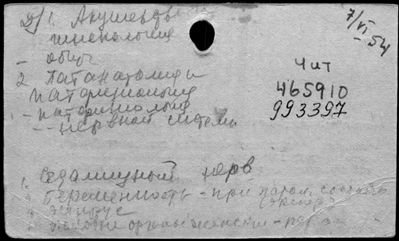 1. Акушерство
гинекология
- общ.
2 Патанатомия и
патофизиология
- патофизиология
-- нервной системы
7/VI 54
Чит
465910
993397
1. Седалищный нерв
2 Беременность - при патол. состоян.
3
4 органы женские -